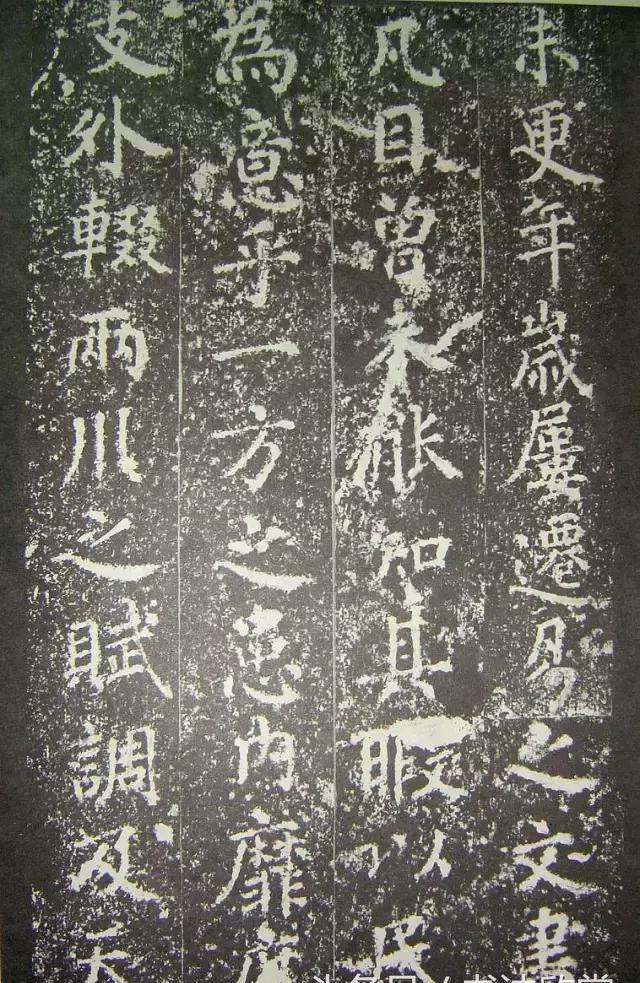 未更年歲屢遷易之文書
凡目曾未能知其暇以民
為意乎一方之患内靡度
支外輟兩川之賦調及天